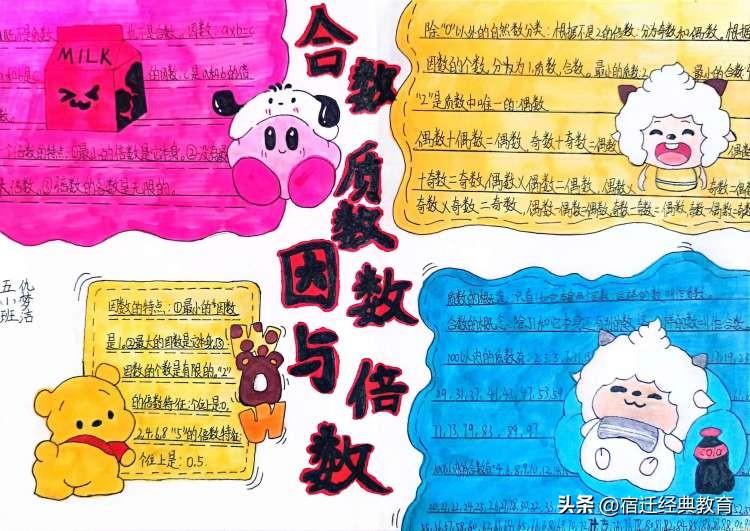 合数 质数
因数与倍数
MILK
也不是合数。因数：a×b=c
的因数，c是a和b的倍
数。
个倍数的特点：①最小的倍数是它本身。②没有最
大倍数，③倍数的个数是无限的。
除"0"以外的自然数分类：根据不是2的倍数，分为奇数和偶数。根据
因数的个数，分为为1.质数，合数。最小的质数2
最小的合数
"2"是质数中唯一的偶数
偶数十偶数二偶数，奇数十奇数二偶数
十奇数二奇数，偶数×偶数二偶数，偶数
奇数×奇数二奇数，偶数一偶数二偶数，奇数一奇数二偶数，奇数一偶数二奇数
五 仇
小 梦
班 洁
因数的特点：①最小的因数
是1。②最大的因数是它本身。③
因数的个数是有限的。"2"
的倍数特征：个位上是0.
2.4.6.8 "5"的倍数特征：
个位上是：0.5.
WOW
质数的概念：只有1和它本身两个因数，这样的数叫质数。
合数的概念：除了1和它本身
100以内的质数有：2.3.5.7
29.31.37.41.43.47.53.59
71.73.79.83.89.97
4.6.8.9.10.12
20.21.22.24.25.26.27.28.30.32.33
COLO
头条 @宿迁经典教育